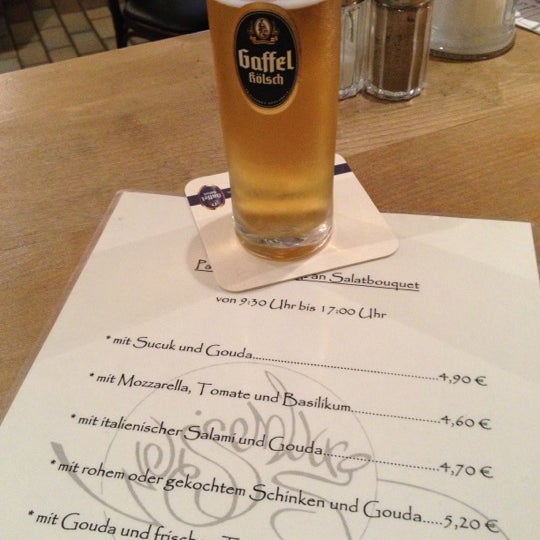 Gaffel
Kölsch
Gaffel
an Salatbouquet
von 9:30 Uhr bis 17:00 Uhr
* mit Sucuk und Gouda..........4,90 €
* mit Mozzarella, Tomate und Basilikum..........4,60 €
* mit italienischer Salami und Gouda..........4,70 €
* mit rohem oder gekochtem Schinken und Gouda.....5,20 €
* mit Gouda und